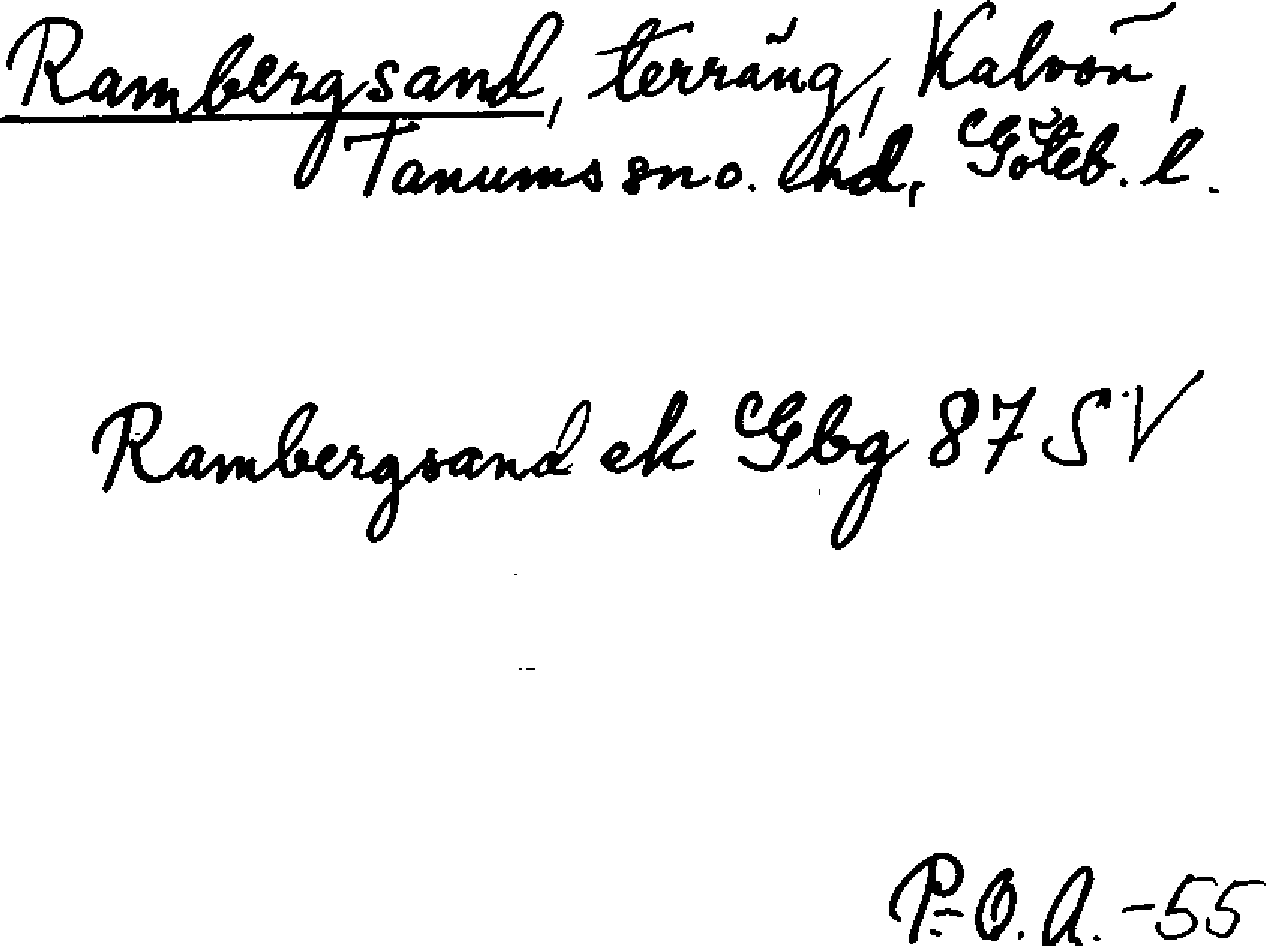 Rambergsand, terräng, Kalvön,
Tanums sn o. hd, Göteb. l.
Rambergsand ek Gbg 87 SV
P-O. A. -55